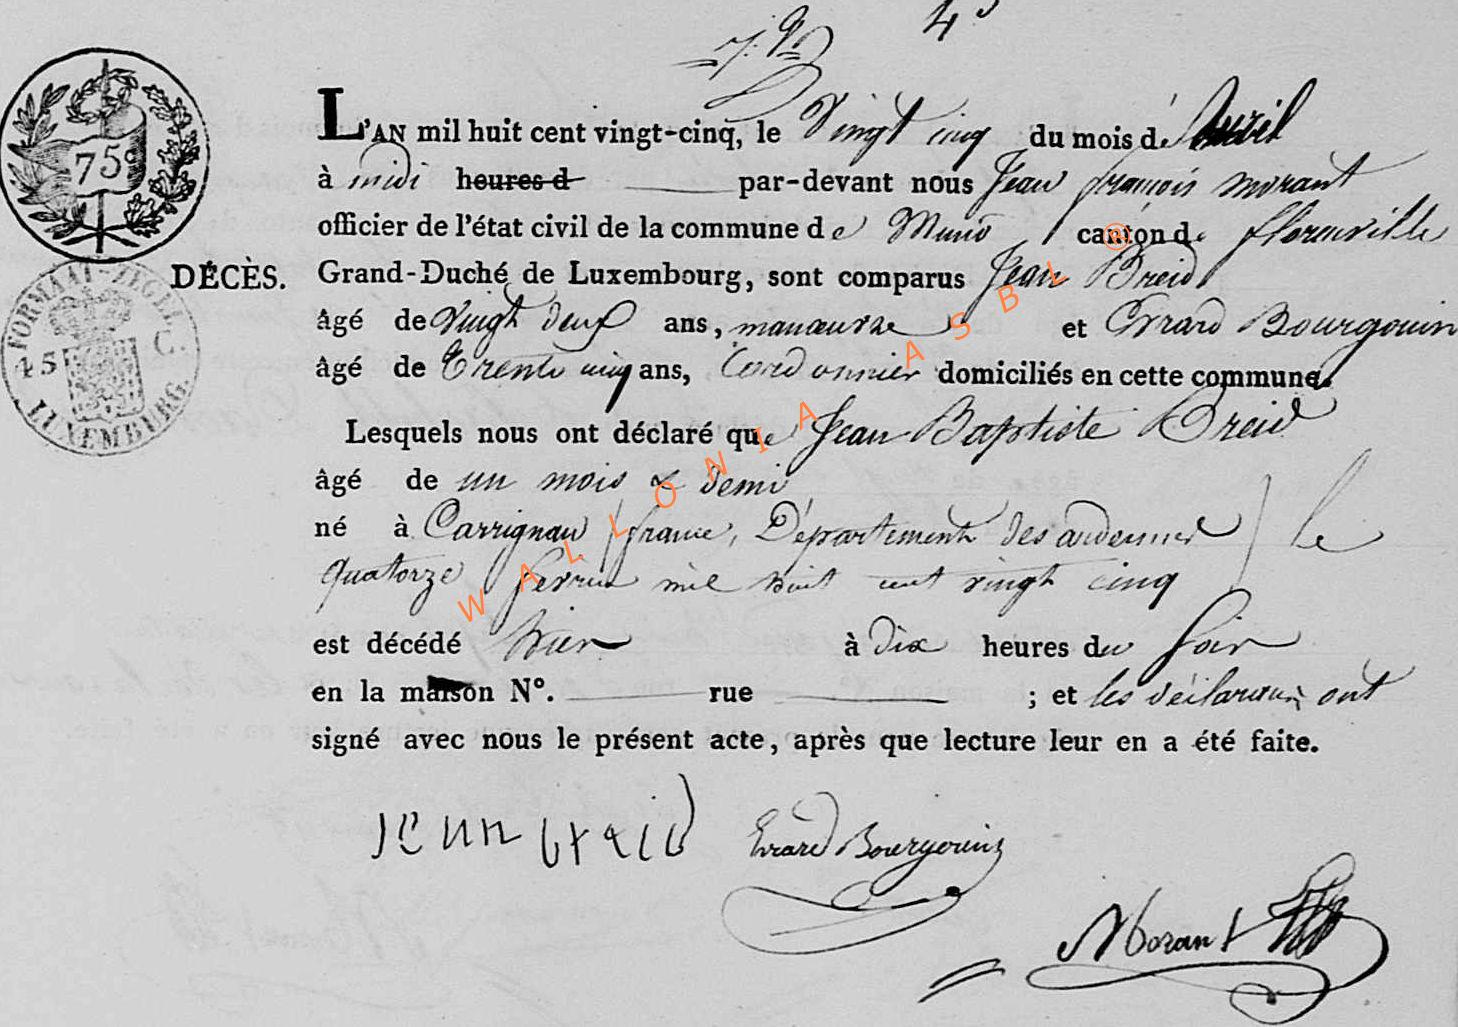 4
75c
FORMAAT-ZEGEL.
45 C.
LUXEMBURG.
L'AN mil huit cent vingt-cinq, le Vingt cinq du mois d'avril
à midi heures d par-devant nous Jean françois morant
officier de l'état civil de la commune de Muno canton de florenville
DÉCÈS. Grand-Duché de Luxembourg, sont comparus Jean Breid
âgé de Vingt deux ans, manœuvre et Errard Bourgouin
âgé de Trente cinq ans, Cordonnier domiciliés en cette commune.
Lesquels nous ont déclaré que Jean Baptiste Breid
âgé de un mois & demi
né à Carrignan (france, Département des ardennes) le
quatorze fevrier mil huit cent vingt cinq
est décédé hier à Dix heures du soir
en la maison N°. rue ; et les déclarans ont
signé avec nous le présent acte, après que lecture leur en a été faite.
Jean braid Errard Bourgouin
Morant
WALLONIA ASBL ®